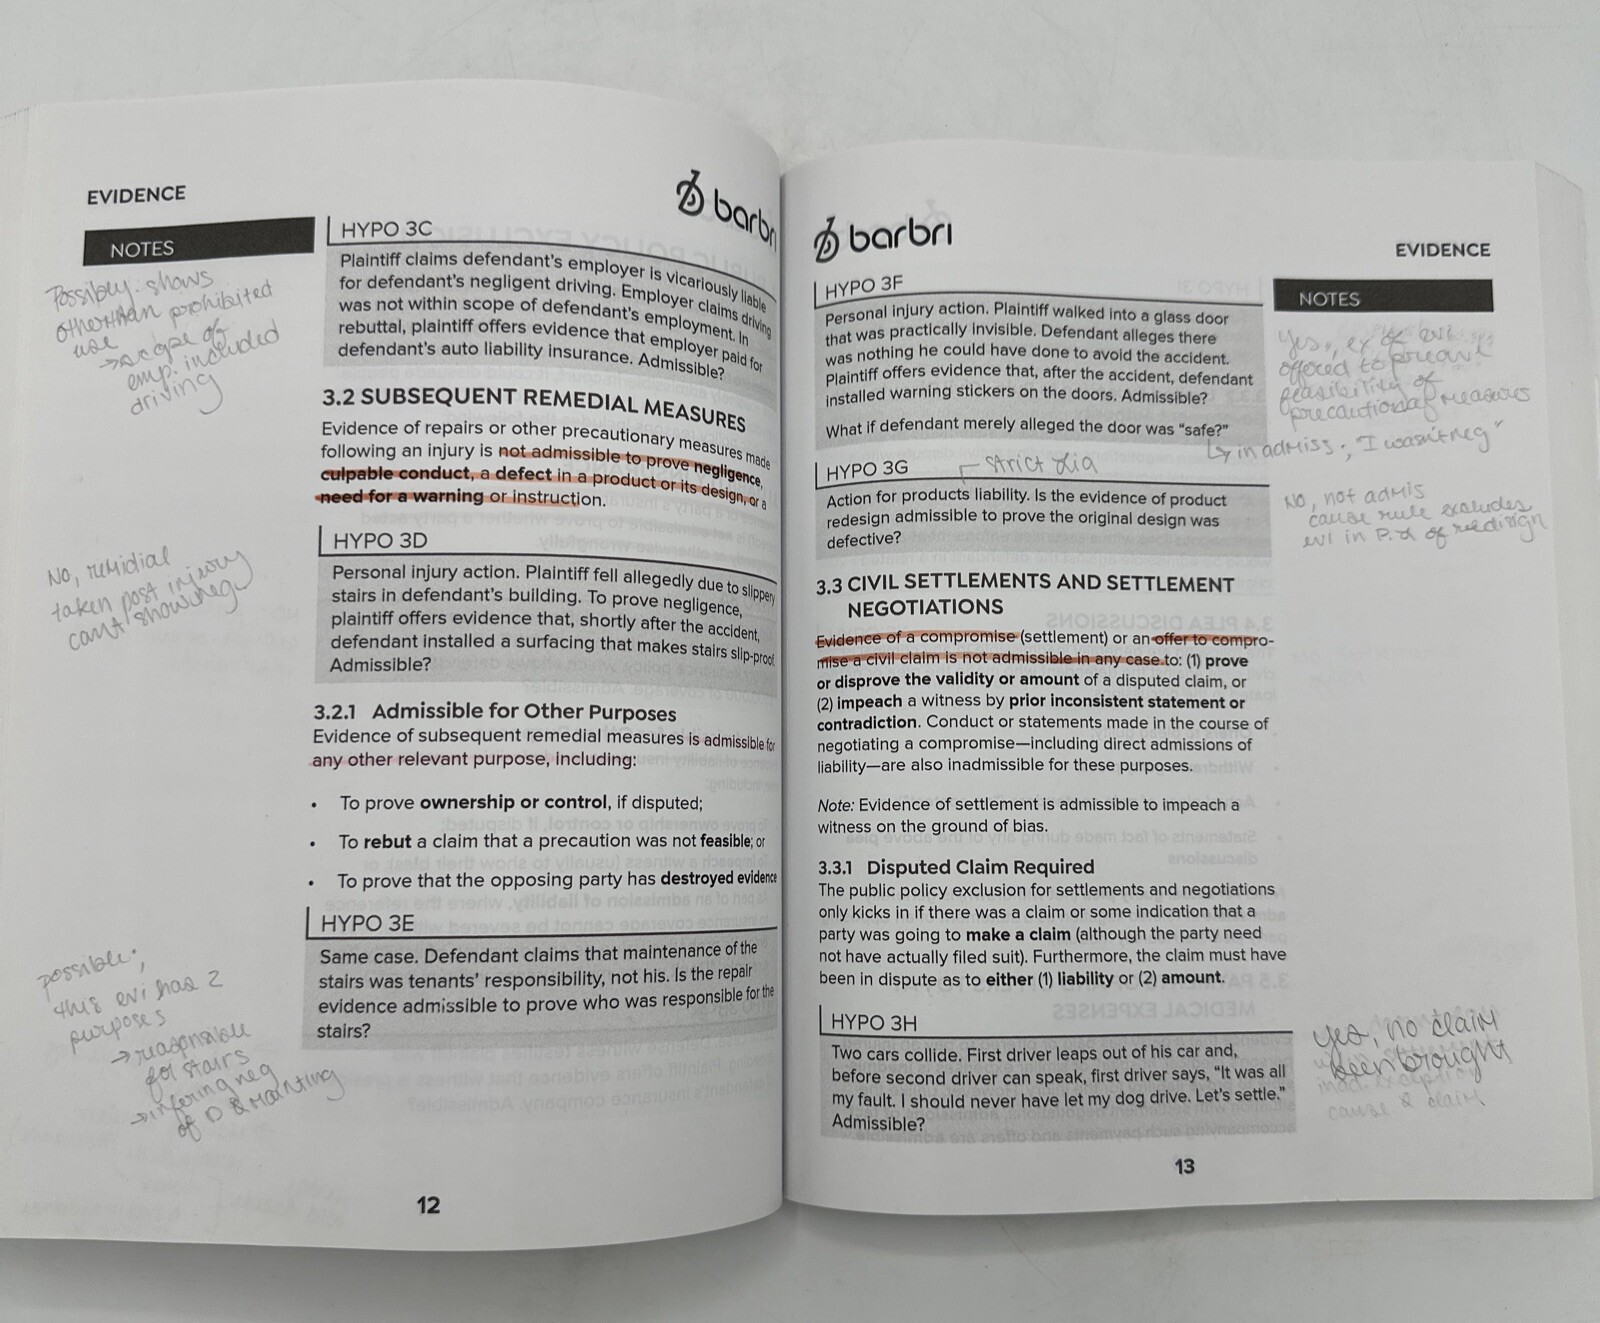 EVIDENCE
barbri
NOTES
Possibly. shows
other than prohibited
use
→ scope of
emp. included
driving
HYPO 3C
Plaintiff claims defendant's employer is vicariously liable
for defendant's negligent driving. Employer claims driving
was not within scope of defendant's employment. In
rebuttal, plaintiff offers evidence that employer paid for
defendant's auto liability insurance. Admissible?
3.2 SUBSEQUENT REMEDIAL MEASURES
Evidence of repairs or other precautionary measures made
following an injury is not admissible to prove negligence,
culpable conduct, a defect in a product or its design, or a
need for a warning or instruction.
No, remidial
taken post injury
cant show neg
HYPO 3D
Personal injury action. Plaintiff fell allegedly due to slippery
stairs in defendant's building. To prove negligence,
plaintiff offers evidence that, shortly after the accident,
defendant installed a surfacing that makes stairs slip-proof.
Admissible?
3.2.1 Admissible for Other Purposes
Evidence of subsequent remedial measures is admissible for
any other relevant purpose, including:
• To prove ownership or control, if disputed;
• To rebut a claim that a precaution was not feasible; or
• To prove that the opposing party has destroyed evidence
possible;
this evi has 2
purposes
→ reasonsible
for stairs
→ infering neg
of D &
HYPO 3E
Same case. Defendant claims that maintenance of the
stairs was tenants' responsibility, not his. Is the repair
evidence admissible to prove who was responsible for the
stairs?
12
barbri
EVIDENCE
NOTES
HYPO 3F
Personal injury action. Plaintiff walked into a glass door
that was practically invisible. Defendant alleges there
was nothing he could have done to avoid the accident.
Plaintiff offers evidence that, after the accident, defendant
installed warning stickers on the doors. Admissible?
What if defendant merely alleged the door was "safe?"
Yes, ex of evi
offered to
feasibility of
precautional measures
↳ inadmiss., "I wasn't neg"
HYPO 3G
strict lia
Action for products liability. Is the evidence of product
redesign admissible to prove the original design was
defective?
No, not admis
cause rule excludes
evi in P.L of redisign
3.3 CIVIL SETTLEMENTS AND SETTLEMENT
NEGOTIATIONS
Evidence of a compromise (settlement) or an offer to compro-
mise a civil claim is not admissible in any case to: (1) prove
or disprove the validity or amount of a disputed claim, or
(2) impeach a witness by prior inconsistent statement or
contradiction. Conduct or statements made in the course of
negotiating a compromise—including direct admissions of
liability—are also inadmissible for these purposes.
Note: Evidence of settlement is admissible to impeach a
witness on the ground of bias.
3.3.1 Disputed Claim Required
The public policy exclusion for settlements and negotiations
only kicks in if there was a claim or some indication that a
party was going to make a claim (although the party need
not have actually filed suit). Furthermore, the claim must have
been in dispute as to either (1) liability or (2) amount.
HYPO 3H
Two cars collide. First driver leaps out of his car and,
before second driver can speak, first driver says, "It was all
my fault. I should never have let my dog drive. Let's settle."
Admissible?
Yes, no claim
been brought
cause claim
13